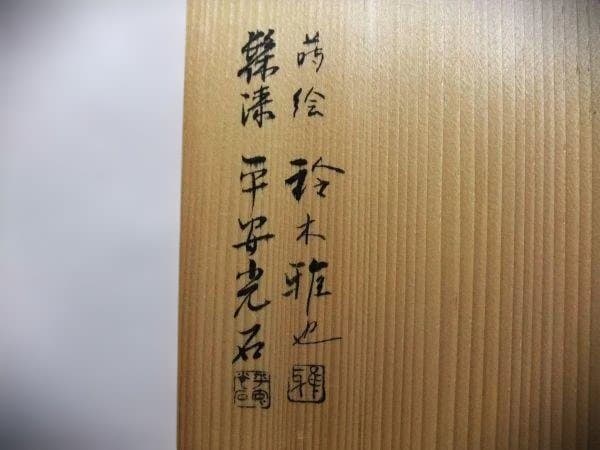 蒔絵 鈴木雅也
髹漆 平安光石